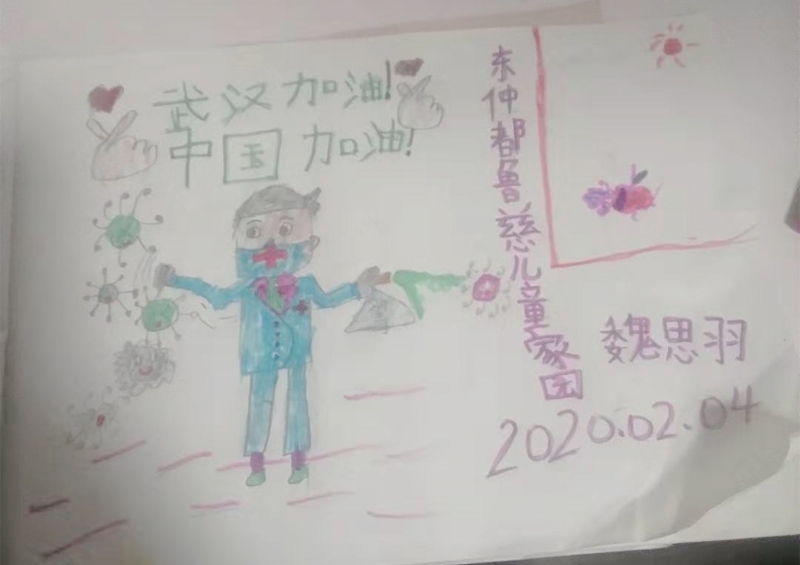 武汉加油!
中国加油!
东仲都鲁慈儿童家园
魏思羽
2020.02.04